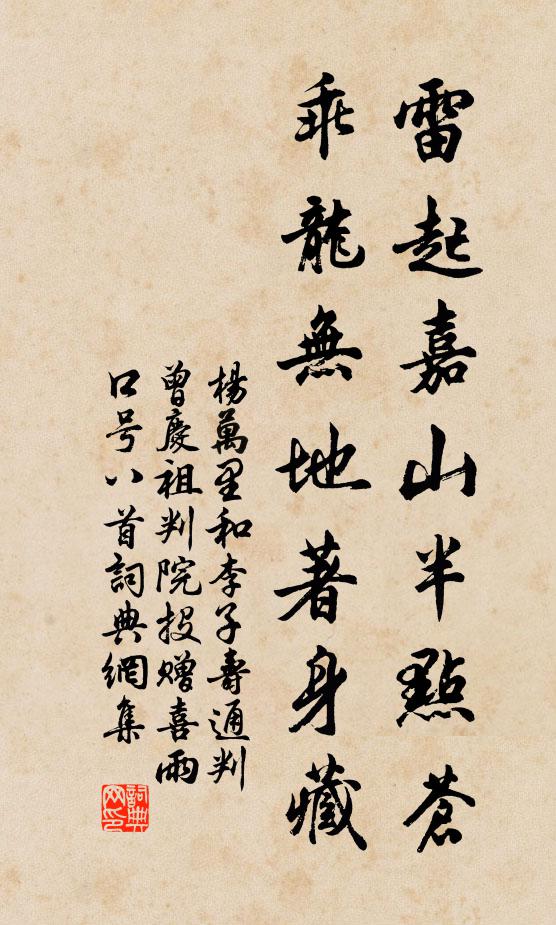 雷起嘉山半點蒼
乖龍無地著身藏
楊萬里和李子壽通判
曾慶祖判院投贈喜雨
口号八首詞典網集
詞典网印